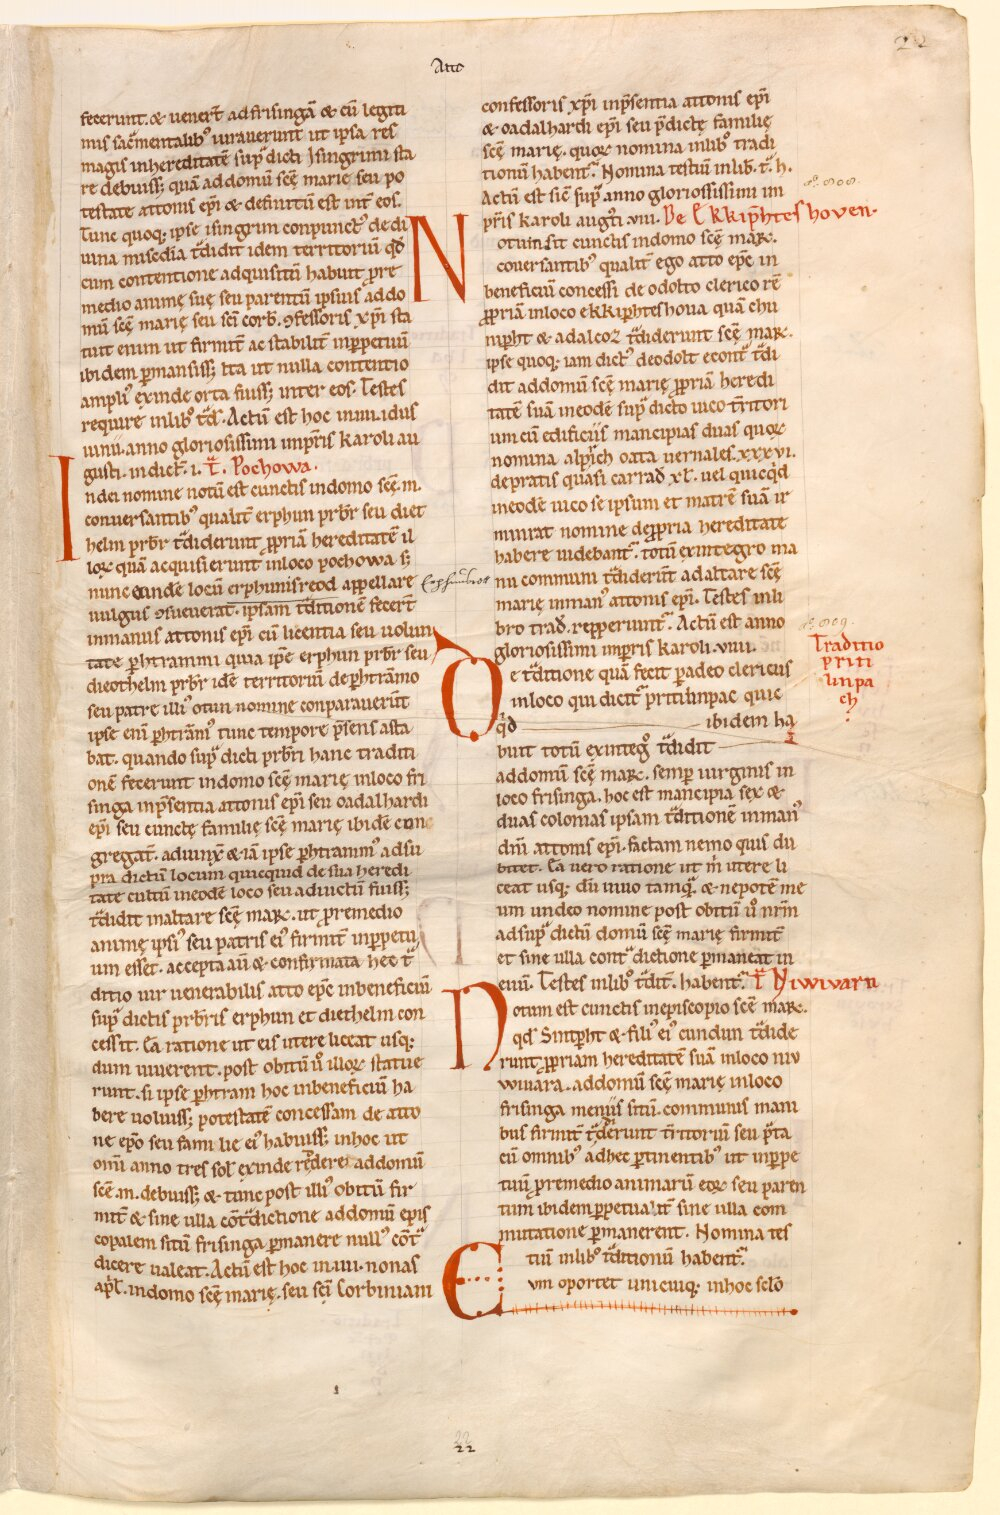 22
Atto
fecerunt. & uener̄t ad frisingā & cū legiti
mis sac̄mentalib᷒ iurauerunt ut ipsa res
magis in hereditatē sup̄ dicti Isingrimi sta
re debuiss; quā ad domū scē marie seu po
testate attonis ep̄i & definitū est int̄ eos.
Tunc quoq; ipse isingrim conpunct᷒ de di
uina misc̄dia t̄didit idem territoriū qd̄
cum contentione adquisitū habuit p̄re
medio animę suę seu parentū ipsius ad do
mū scē marię seu sc̄i corb. ꝯfessoris xp̄i sta
tuit enim ut firmit̄ ac stabilit̄ in p̄petuū
ibidem p̄mansiss; Ita ut nulla contentio
ampli᷒ exinde orta fuiss; inter eos. Testes
require in lib᷒ t̄d. Actū est hoc in .iiii. idus
iunii. anno gloriosissimi imp̄ris karoli au
gusti. in dict̄. i. T̄. Pochowa.
In dei nomine notū est cunctis in domo scē. m.
conuersantib᷒ qualit̄ erphun prb̄r seu diet
helm prb̄r t̄diderunt ꝓpriā hereditatē il
loꝝ quā acquisierunt in loco pochowa s;
nunc eundē locū erphunisreod appellare
uulgus ꝯsueuerat. ipsam t̄ditionē fecer̄t
Erphunisreot
in manus attonis ep̄i cū licentia seu uolun
tate p̄htrammi quia ip̄e erphun prb̄r seu
dieothelm prb̄r idē territoriū de p̄htrāmo
seu patre illi᷒ otun nomine conparauer̄unt
ipse eni p̄htrām᷒ tunc tempore p̄sens asta
bat. quando sup̄ dicti prb̄ri hanc traditi
onē fecerunt in domo scē marię in loco fri
singa in p̄sentia attonis ep̄i seu oadalhardi
ep̄i seu cunctę familię scē marię ibidē con
gregat̄. adiunx̄ & iā ipse p̄htramm᷒ ad su
pra dictū locum quicquid de sua heredi
tate cultū in eodē loco seu adiuctū fuiss;
t̄didit in altare scē maꝝ. ut pro remedio
animę ipsi᷒ seu patris ei᷒ firmit̄ in p̄petu
um esset. accepta aū & confirmata hec t̄
ditio uir uenerabilis atto ep̄c in beneficiū
sup̄ dictis prb̄ris erphun et diethelm con
cessit. Ea ratione ut eis utere liceat usq;
dum uiuerent. post obitū u᷒ illoꝝ statue
runt. si ipse p̄htram hoc in beneficiū ha
bere uoluiss; potestatē concessam de atto
ne ep̄o seu familie ei᷒ habuiss; in hoc ut
om̄i anno tres sol̄ exinde reddere ad domū
scē. m. debuiss; & tunc post illi᷒ obitū fir
mit̄ & sine ulla cōt̄dictione ad domū epis
copalem sitū frisinga p̄manere null᷒ cōt̄
dicere ualeat. Actū est hoc in .iiii. nonas
ap̄l. in domo scē marię. seu sc̄i Corbiniani
confessoris xp̄i in p̄sentia attonis ep̄i
& oadalhardi ep̄i seu p̄dictę familię
scē marię. quoꝝ nomina in lib᷒ tradi
tionū habent̄. Nomina testiū in lib. t̄. h.
Actū est sic̄ sup̄ anno gloriossissimi im
p̄ris karoli aug᷒ti. viii. De Ekkip̄htes hoven.
Notum sit cunctis in domo scē maꝝ.
couersantib᷒ qualit̄ ego atto ep̄c in
beneficiū concessi de odolto clerico rē
ꝓpriā in loco ekkip̄hteshoua quā chu
nip̄ht & adalcoz t̄diderunt scē maꝝ.
ipse quoq; iam dict᷒ deodolt econt̄ t̄di
dit ad domū scē marię ꝓpriā heredi
tatē suā in eodē sup̄ dicto uico t̄ritori
um cū edificiis mancipias duas quoꝝ
nomina alprich oata uernales .xxxvi.
de pratis quasi carrad̄ xl. uel quicq̄d
in eodē uico se ipsum et matrē suā ir
minrat nomine de ꝓpria hereditate
habere uidebant̄. totū ex integro ma
nu communi t̄diderūt ad altare scē
marię in man᷒ attonis ep̄i. Testes in li
bro trad̄. repperiunt̄. Actū est anno
gloriosissimi imp̄ris karoli. viiii.
Traditio
priti
linpa
ch.
De t̄ditione quā fecit p̄ adeo clericus
in loco qui dicit̄ pritilinpac quic
q̄d ibidem ha
buit totū ex integ̊ t̄didit
ad domū scē maꝝ. semp̄ uirginis in
loco frisinga. hoc est mancipia sex &
duas colonias ipsam t̄ditionē in man᷒
dn̄i attonis ep̄i. factam nemo quis du
bitet. Ea uero ratione ut m̄ utere li
ceat usq; dū uiuo tamq̄. & nepotē me
um undeo nomine post obitū u᷒ nr̄m
ad sup̄ dictū domū scē marię firmit̄
et sine ulla cont̄dictione p̄maneat in
euū. Testes in lib᷒ t̄dit̄. habent̄. T̄ Niwivarn
Notum est cunctis in episcopio scē maꝝ.
qd̄ Sintp̄ht & fili᷒ ei᷒ cundun t̄dide
runt ꝓpriam hereditatē suā in loco niv
wiuara. ad domū scē marię in loco
frisinga meniis sitū. communis mani
bus firmit̄ t̄derunt t̄ritoriū seu p̄ta
cū omnib᷒ ad hec p̄tinentib᷒ ut in p̄pe
tuū pro remedio animarū eoꝝ seu paren
tum ibidem p̄petualit̄ sine ulla com
mutatione p̄manerent. Nomina tes
tiū in lib᷒ t̄ditionū habent̄.
Cum oportet unicuiq; in hoc sclō
22
22